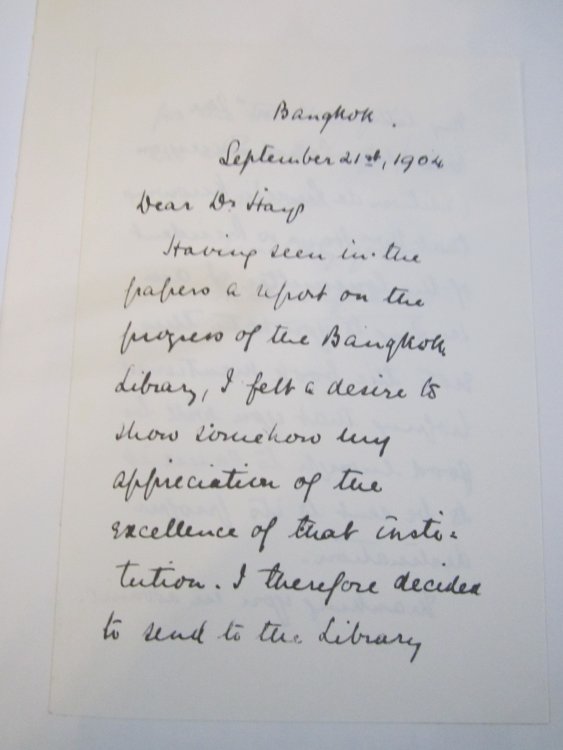 Bangkok.
September 21st, 1904
Dear Dr Hays
Having seen in the
papers a report on the
progress of the Bangkok
Library, I felt a desire to
show somehow my
appreciation of the
excellence of that insti-
tution. I therefore decided
to send to the Library